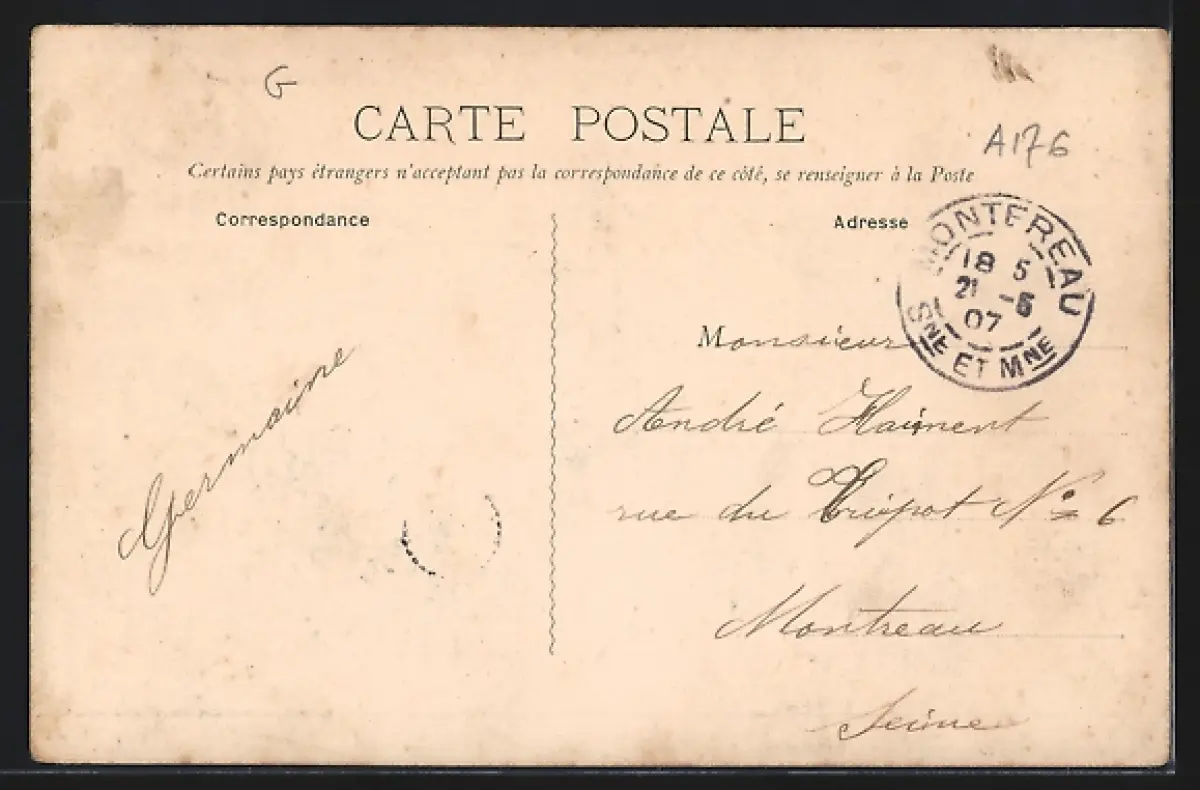 G
CARTE POSTALE
A176
Certains pays étrangers n'acceptant pas la correspondance de ce côté, se renseigner à la Poste
Correspondance
Adresse
MONTEREAU
18 5
21 -5
07
SNE ET MNE
Germaine
Monsieur
André Haiment
rue du Tripot No 6
Montreau
Seine